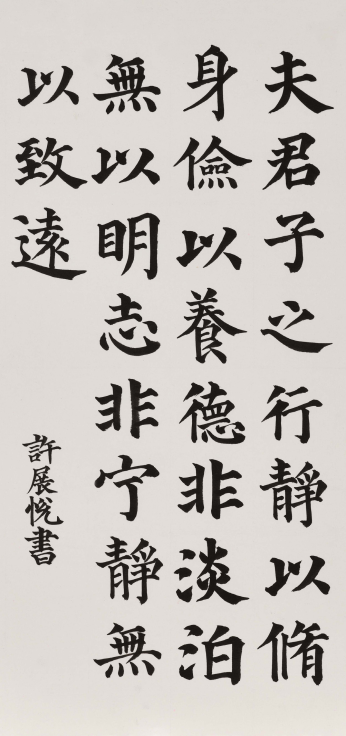 夫君子之行靜以脩
身儉以養德非淡泊
無以明志非宁靜無
以致遠
許展悅書